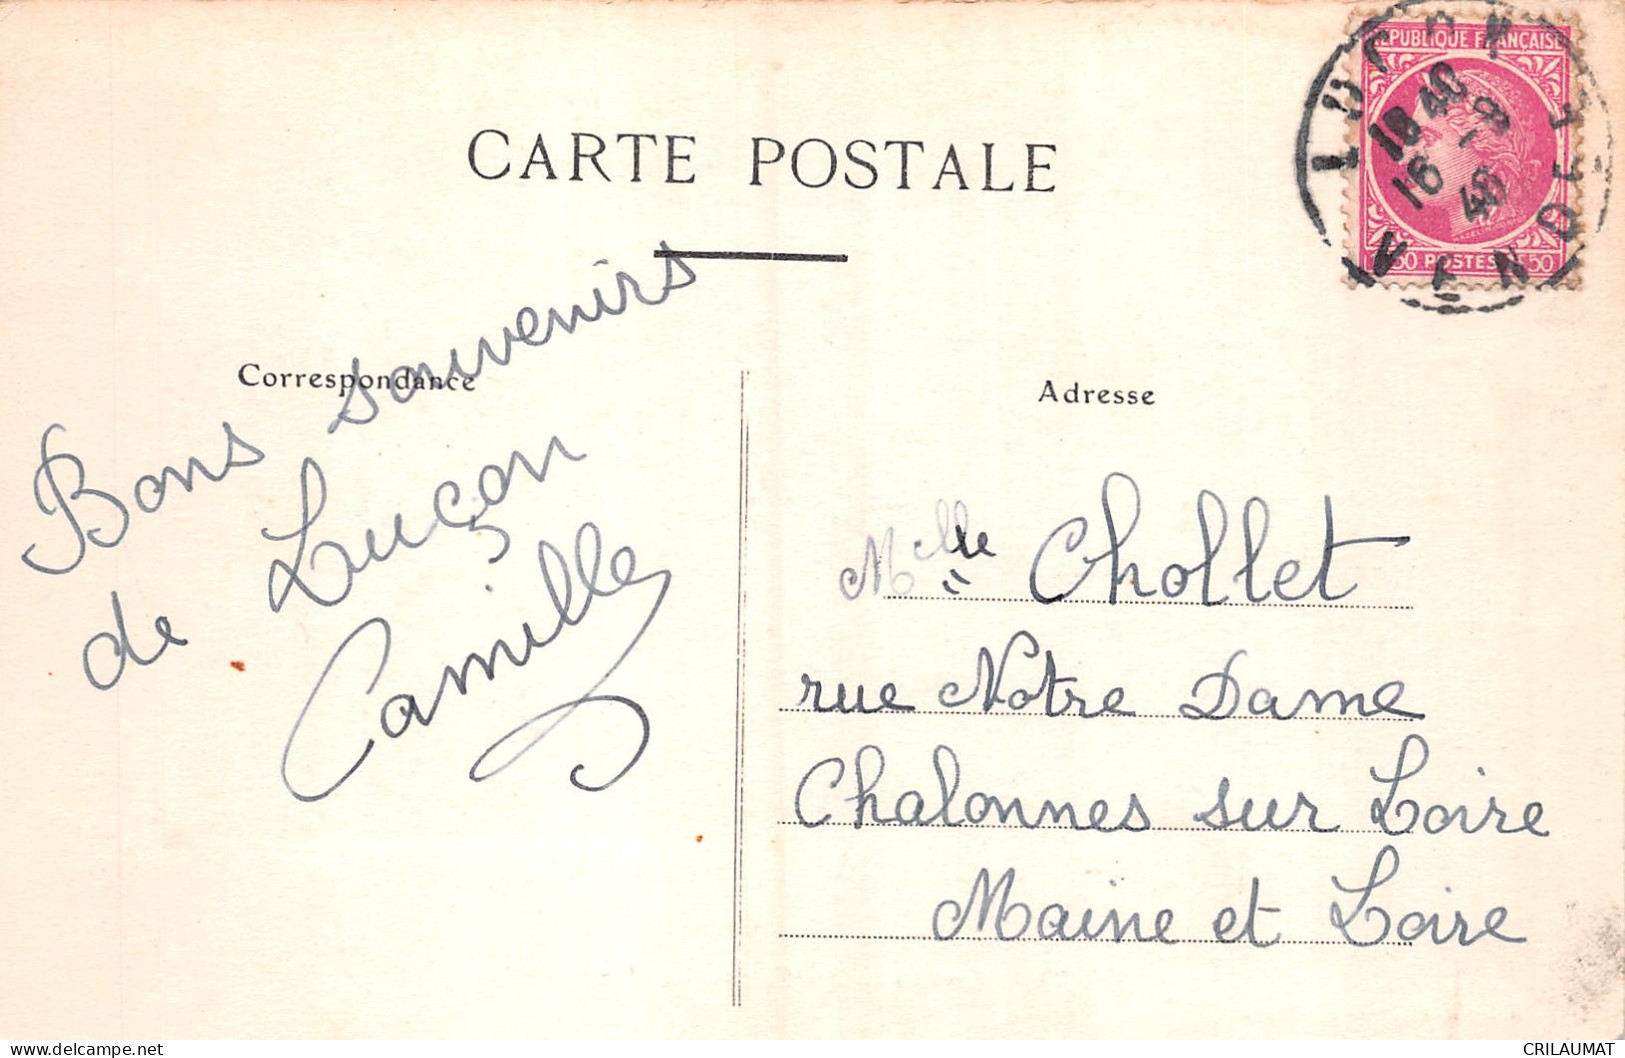 CARTE POSTALE
REPUBLIQUE FRANÇAISE
POSTES
50
LUÇON
18 40
16 - 8
VENDEE
Correspondance
Bons souvenirs
de Luçon
Camille
Adresse
Melle Chollet
rue Notre Dame
Chalonnes sur Loire
Maine et Loire
CRILAUMAT